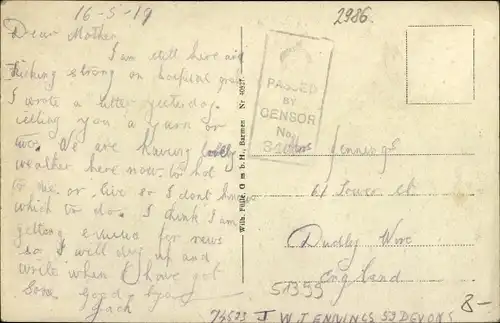 16-5-19
2986.
Dear Mother
I am still here and
kicking strong on
I wrote a letter yesterday.
telling you a yarn or
two. We are having lovely
weather here now. to hot
to me. or. live so I dont know
which to do. I think I am
getting for news
so I will dry up and
write when I have got
Some good-bye
Jack
Wilh. Fülle, G. m. b. H., Barmen Nr.
PASSED
BY
CENSOR
No.
Mrs Jennings
61 Tower St
Dudly Worc
England
51355
8-
74593 J W JENNINGS 53 DEVONS